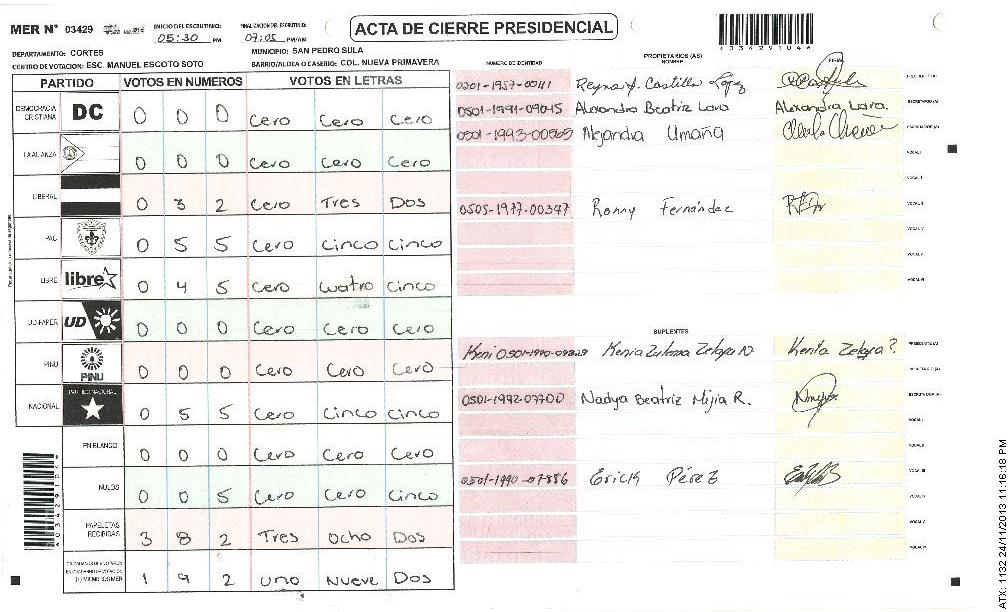 MER N° 03429 INICIO DEL ESCRUTINIO: 05:30 PM FINALIZACION DEL ESCRUTINIO: 07:05 PM/AM ACTA DE CIERRE PRESIDENCIAL
DEPARTAMENTO: CORTES MUNICIPIO: SAN PEDRO SULA
CENTRO DE VOTACION: ESC. MANUEL ESCOTO SOTO BARRIO/ALDEA O CASERIO: COL. NUEVA PRIMAVERA
PARTIDO VOTOS EN NUMEROS VOTOS EN LETRAS
DEMOCRACIA CRISTIANA DC 0 0 0 Cero Cero Cero
LA ALIANZA 0 0 0 Cero Cero Cero
LIBERAL 0 3 2 Cero Tres Dos
PAC 0 5 5 Cero Cinco Cinco
LIBRE libre 0 4 5 Cero Cuatro Cinco
UD-FAPER UD 0 0 0 Cero Cero Cero
PINU PINU 0 0 0 Cero Cero Cero
NACIONAL PARTIDO NACIONAL 0 5 5 Cero Cinco Cinco
EN BLANCO 0 0 0 Cero Cero Cero
NULOS 0 0 5 Cero Cero Cinco
PAPELETAS RECIBIDAS 3 8 2 Tres Ocho Dos
1 9 2 Uno Nueve Dos
NUMERO DE IDENTIDAD PROPIETARIOS (AS) NOMBRE FIRMA
Castillo López
0501-1991-09045 Alexandra Beatriz Lara Alexandra Lara. SECRETARIO(A)
0501-1993-00565 Alejandra Umaña ESCRUTADOR (A)
VOCAL I
VOCAL II
0505-1977-00347 Ronny Fernández VOCAL III
VOCAL IV
VOCAL V
VOCAL VI
SUPLENTES
Kenia Zelaya PRESIDENTE(A)
0501-1992-07700 Nadya Beatriz Mijia R. ESCRUTADOR (A)
VOCAL I
VOCAL II
0501-1990-07886 Erick Pérez VOCAL III
VOCAL IV
VOCAL V
VOCAL VI
4034291044
ATX: 1132 24/11/2013 11:16:18 PM